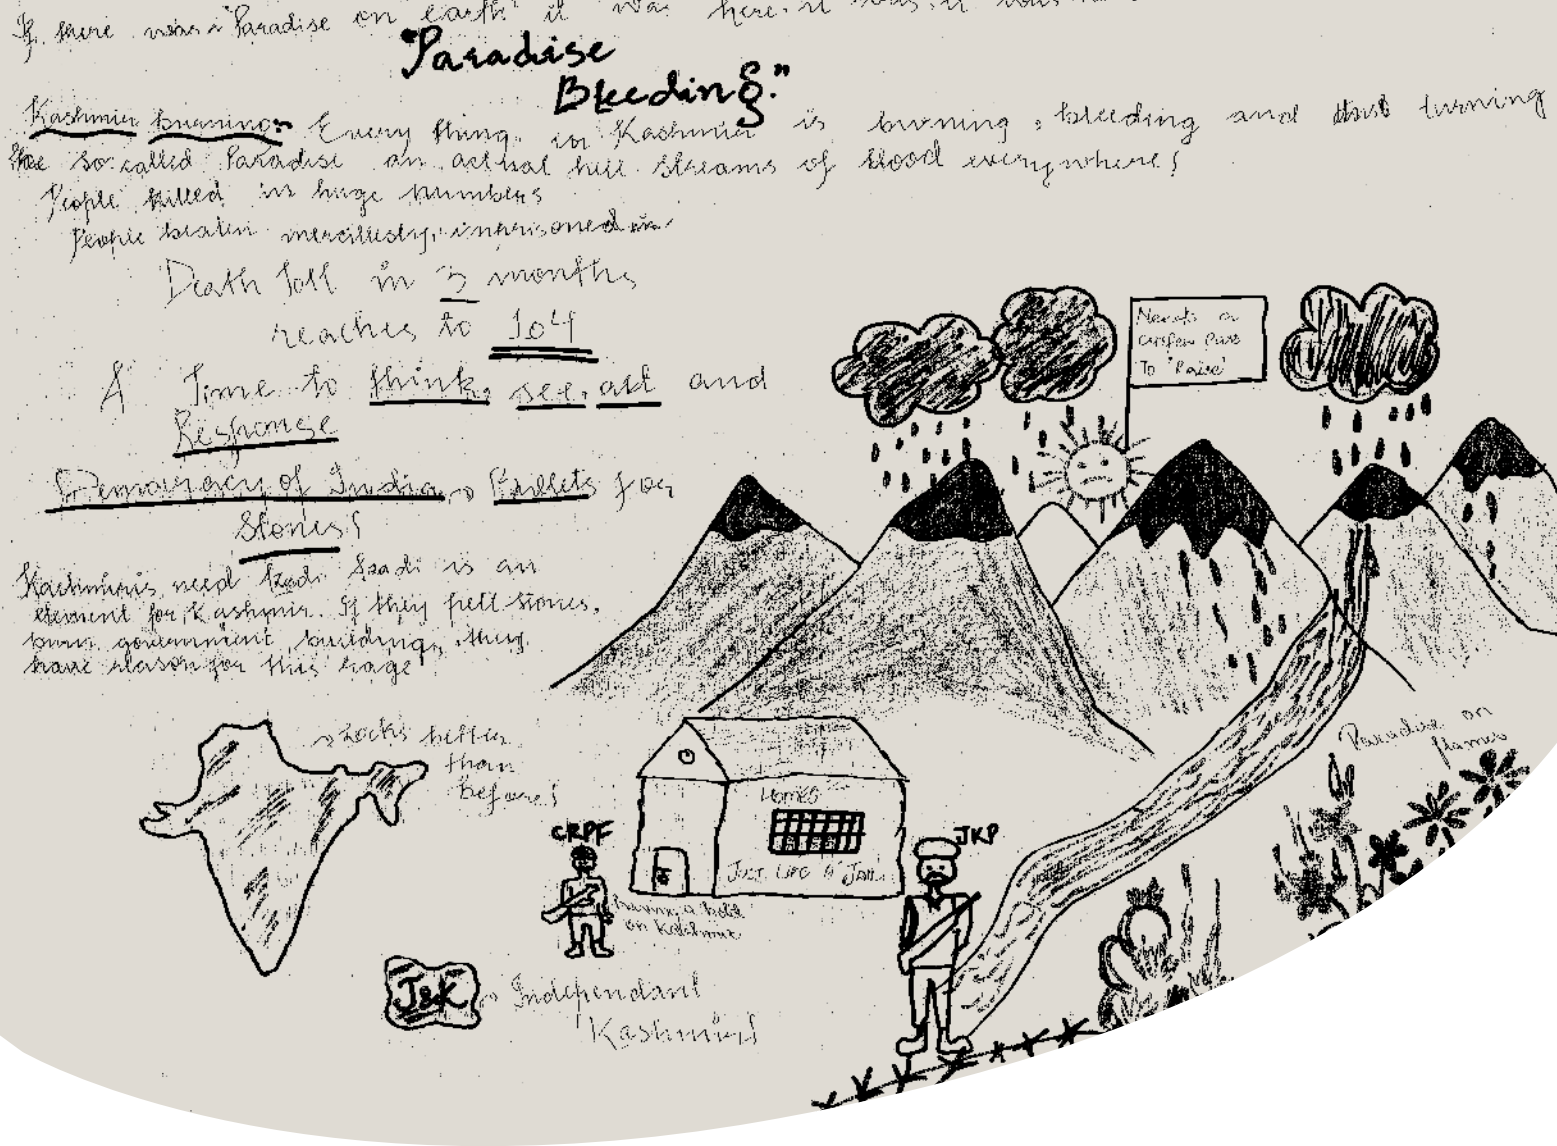 If there was a Paradise on earth it was here. it was. it was
"Paradise
Bleeding."
Kashmir burning:- Every thing in Kashmir is burning, bleeding and turning
the so called Paradise an actual hell. Streams of blood everywhere!
People killed in huge numbers
People beaten mercilessly, imprisoned
Death Toll in 3 months
reaches to 104
A Time to think, see, act and
Response
Democracy of India → Bullets for
Stones!
Kashmiris need Azadi Azadi is an
element for Kashmir. If they pelt stones,
burn government buildings, they
have reason for this rage
Needs a
Curfew Pass
To 'Raise'
→ Looks better
than
before!
Paradise on
flames
HOMES
JUST LIKE A JAIL
CRPF
JKP
having a hold
on Kashmir
J&K → Independant
Kashmir!